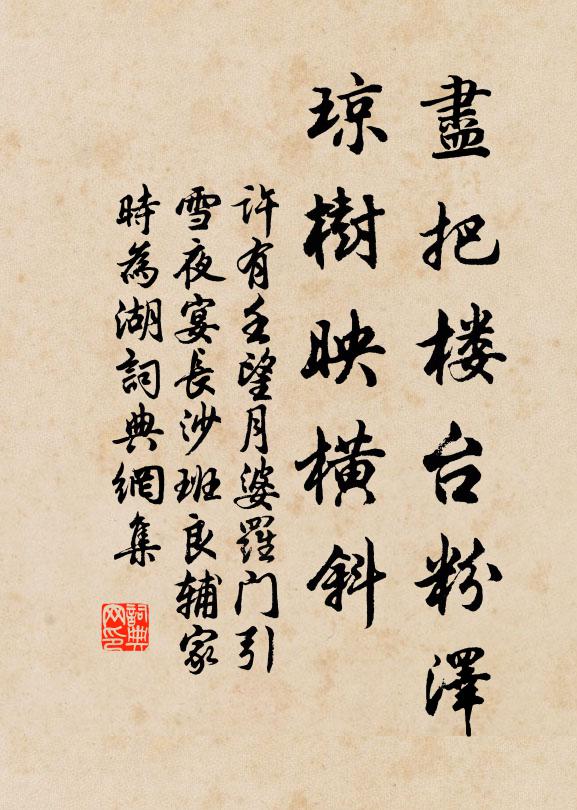 盡把楼台粉澤
琼樹映橫斜
許有壬望月婆羅门引
雪夜宴長沙班良輔家
時為湖詞典網集
詞典
网印